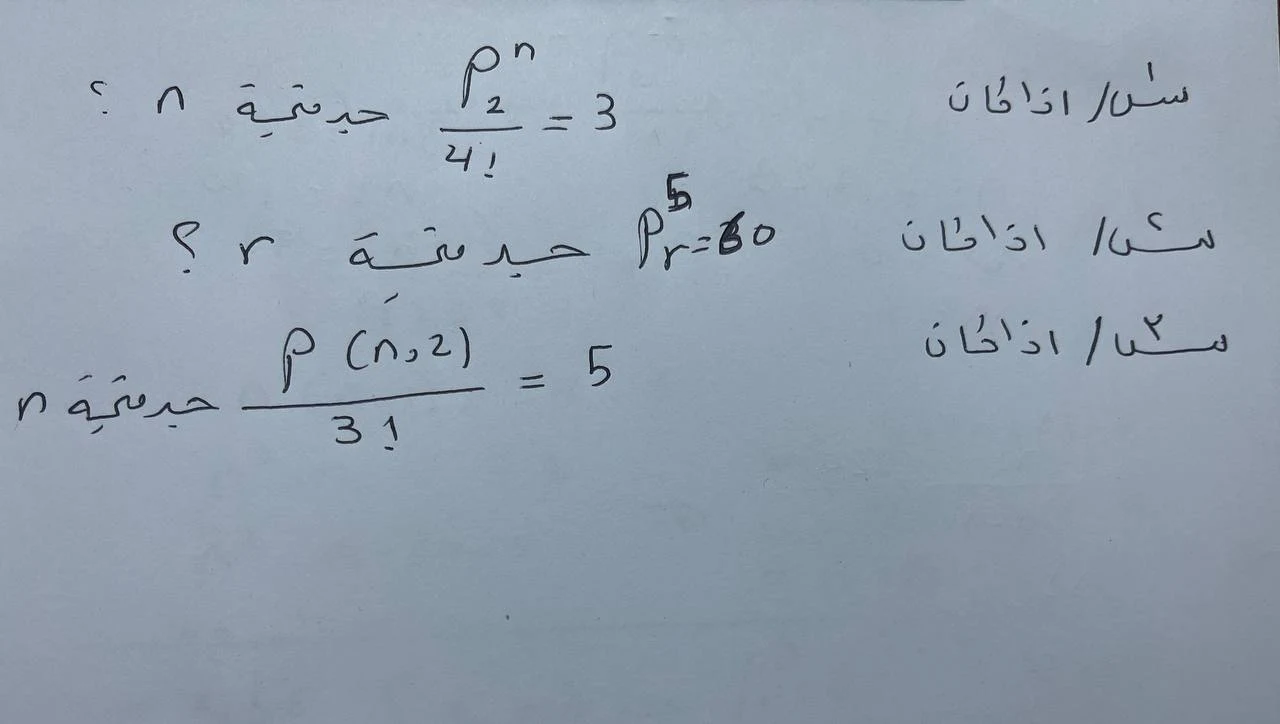 س١/ اذا كان P₂ⁿ / 4! = 3 جد قيمة n ؟
س٢/ اذا كان Pᵣ⁵ = 60 جد قيمة r ؟
س٣/ اذا كان P(n,2) / 3! = 5 جد قيمة n